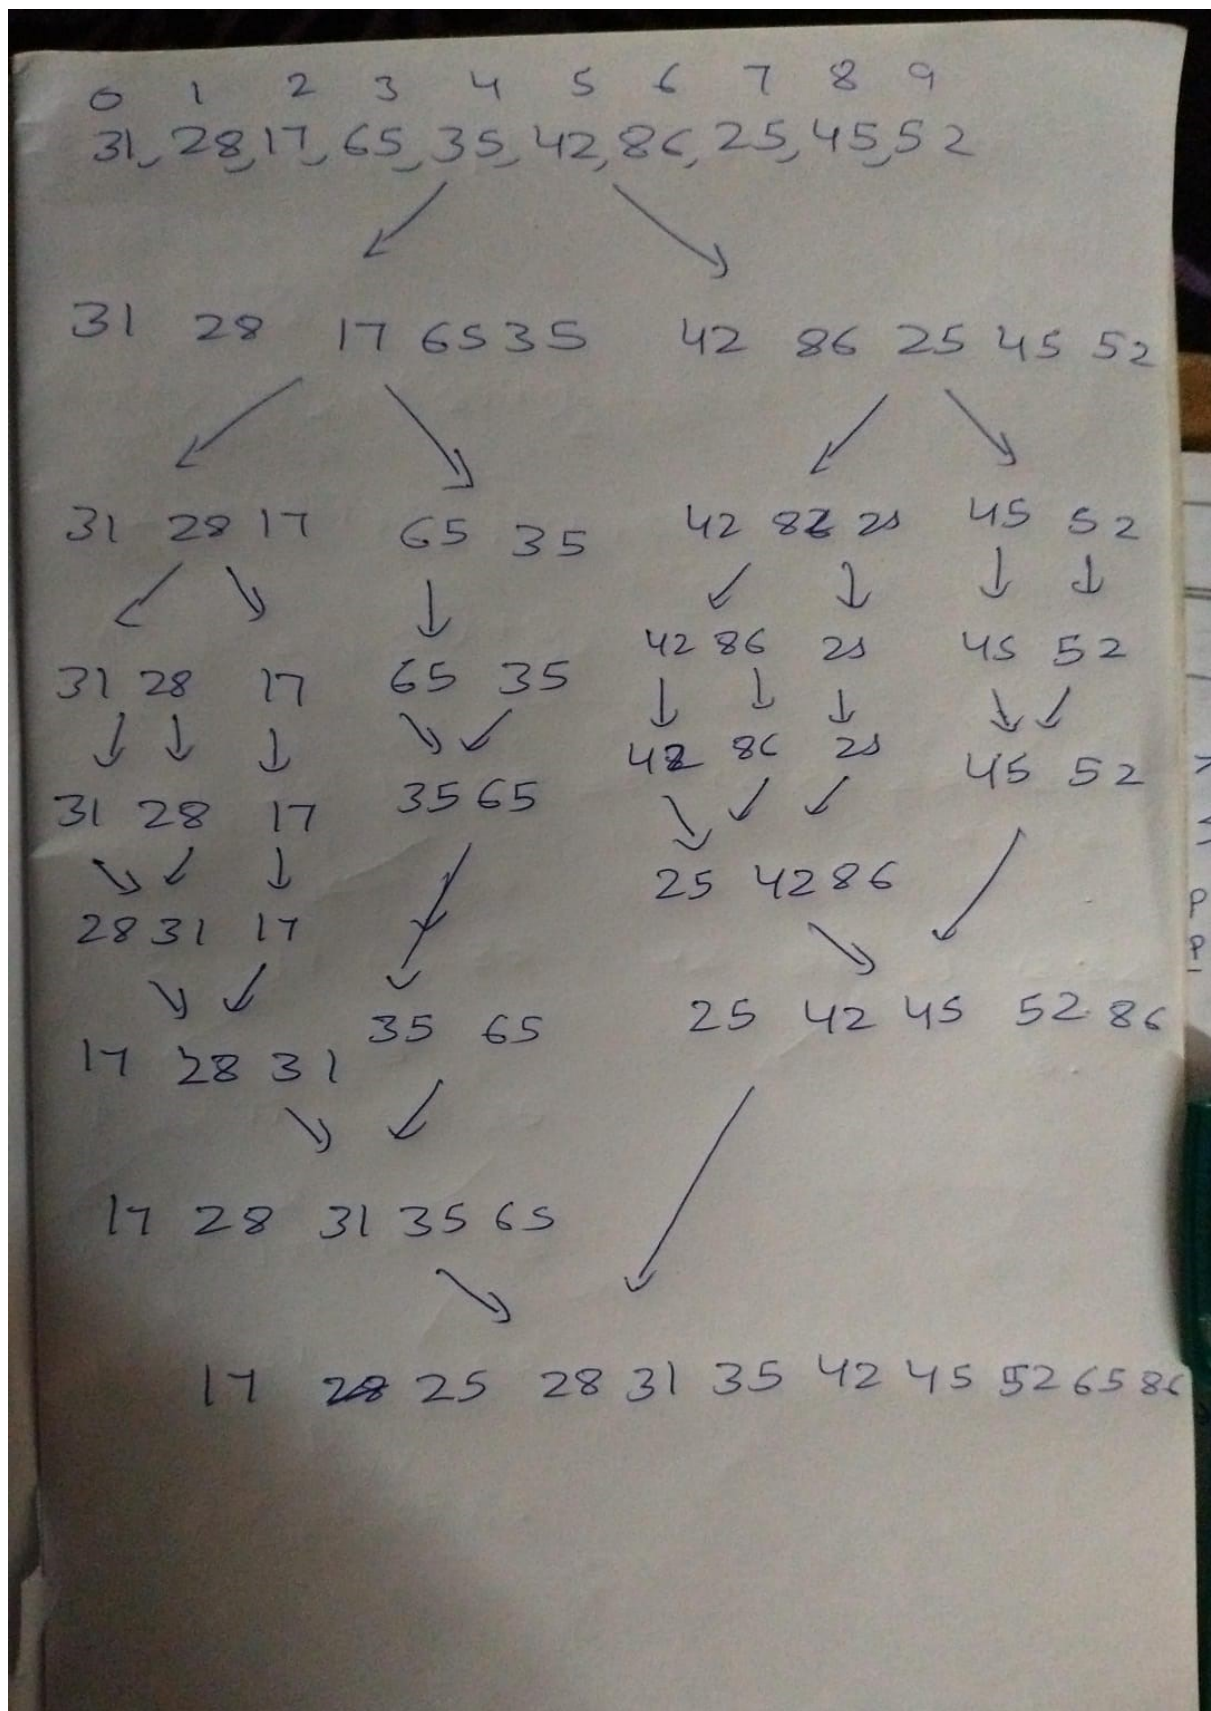 0 1 2 3 4 5 6 7 8 9
31, 28, 17, 65, 35, 42, 86, 25, 45, 52
31 28 17 65 35 42 86 25 45 52
31 28 17 65 35 42 86 25 45 52
31 28 17 65 35 42 86 25 45 52
31 28 17 35 65 42 86 25 45 52
28 31 17 25 42 86
17 28 31 35 65 25 42 45 52 86
17 28 31 35 65
17 25 28 31 35 42 45 52 65 86